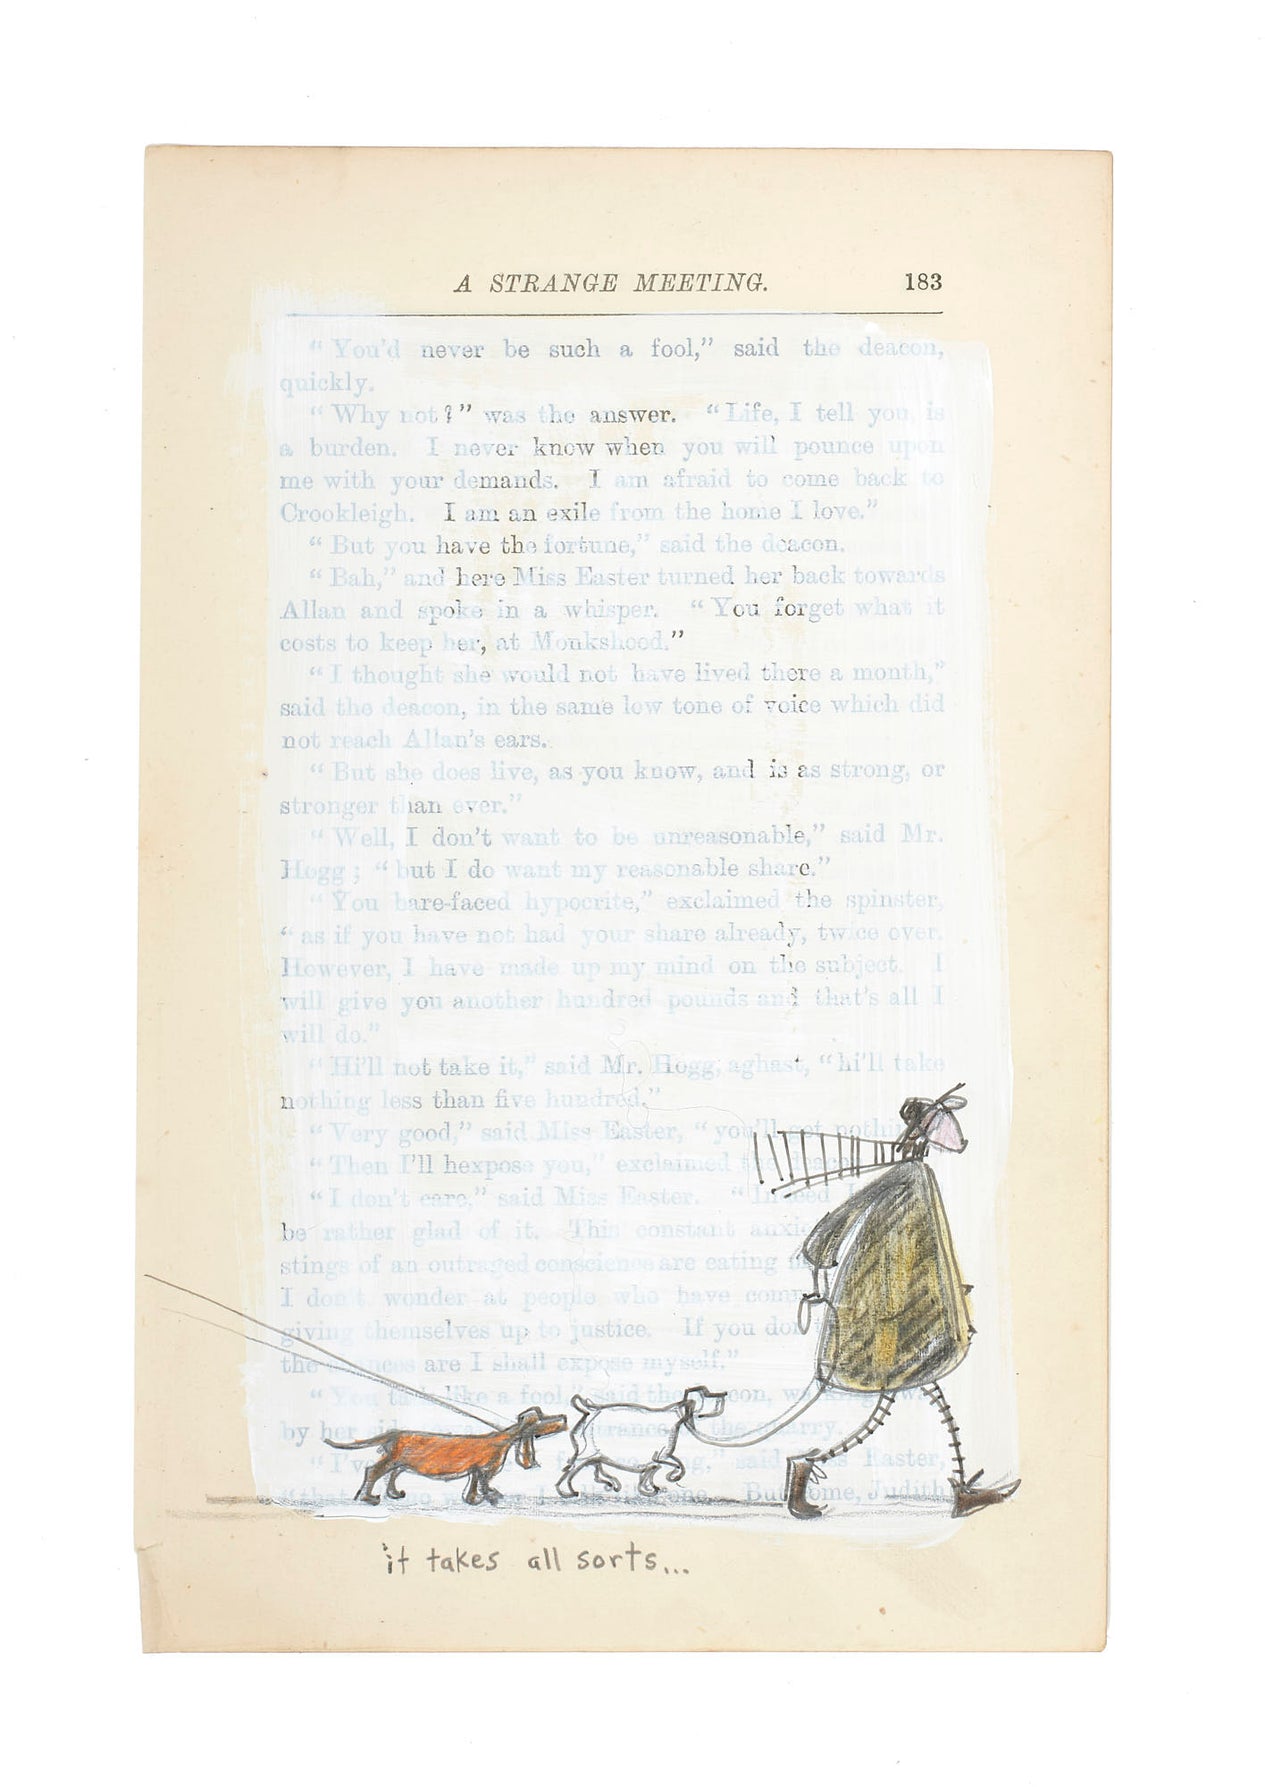 A STRANGE MEETING. 183
“ You'd never be such a fool,” said the deacon,
quickly.
“ Why not ? ” was the answer. “ Life, I tell you, is
a burden. I never know when you will pounce upon
me with your demands. I am afraid to come back to
Crookleigh. I am an exile from the home I love.”
“ But you have the fortune,” said the deacon.
“ Bah,” and here Miss Easter turned her back towards
Allan and spoke in a whisper. “ You forget what it
costs to keep her, at Monkshood.”
“ I thought she would not have lived there a month,”
said the deacon, in the same low tone of voice which did
not reach Allan's ears.
“ But she does live, as you know, and is as strong, or
stronger than ever.”
“ Well, I don't want to be unreasonable,” said Mr.
Hogg ; “ but I do want my reasonable share.”
“ You bare-faced hypocrite,” exclaimed the spinster,
“ as if you have not had your share already, twice over.
However, I have made up my mind on the subject. I
will give you another hundred pounds and that's all I
will do.”
“ Hi'll not take it,” said Mr. Hogg, aghast, “ hi'll take
nothing less than five hundred.”
“ Very good,” said Miss Easter, “ you'll get nothi
“ Then I'll hexpose you,” exclaimed the deaco
“ I don't care,” said Miss Easter. “ Indeed I
be rather glad of it. This constant anxi
stings of an outraged conscience are eating
I don't wonder at people who have comm
giving themselves up to justice. If you don't
the are I shall expose myself.”
“ You talk like a fool,” said the deacon, walking
by her side entrance the quarry.
“ I've said Miss Easter,
“ that one. But come, Judith
it takes all sorts...